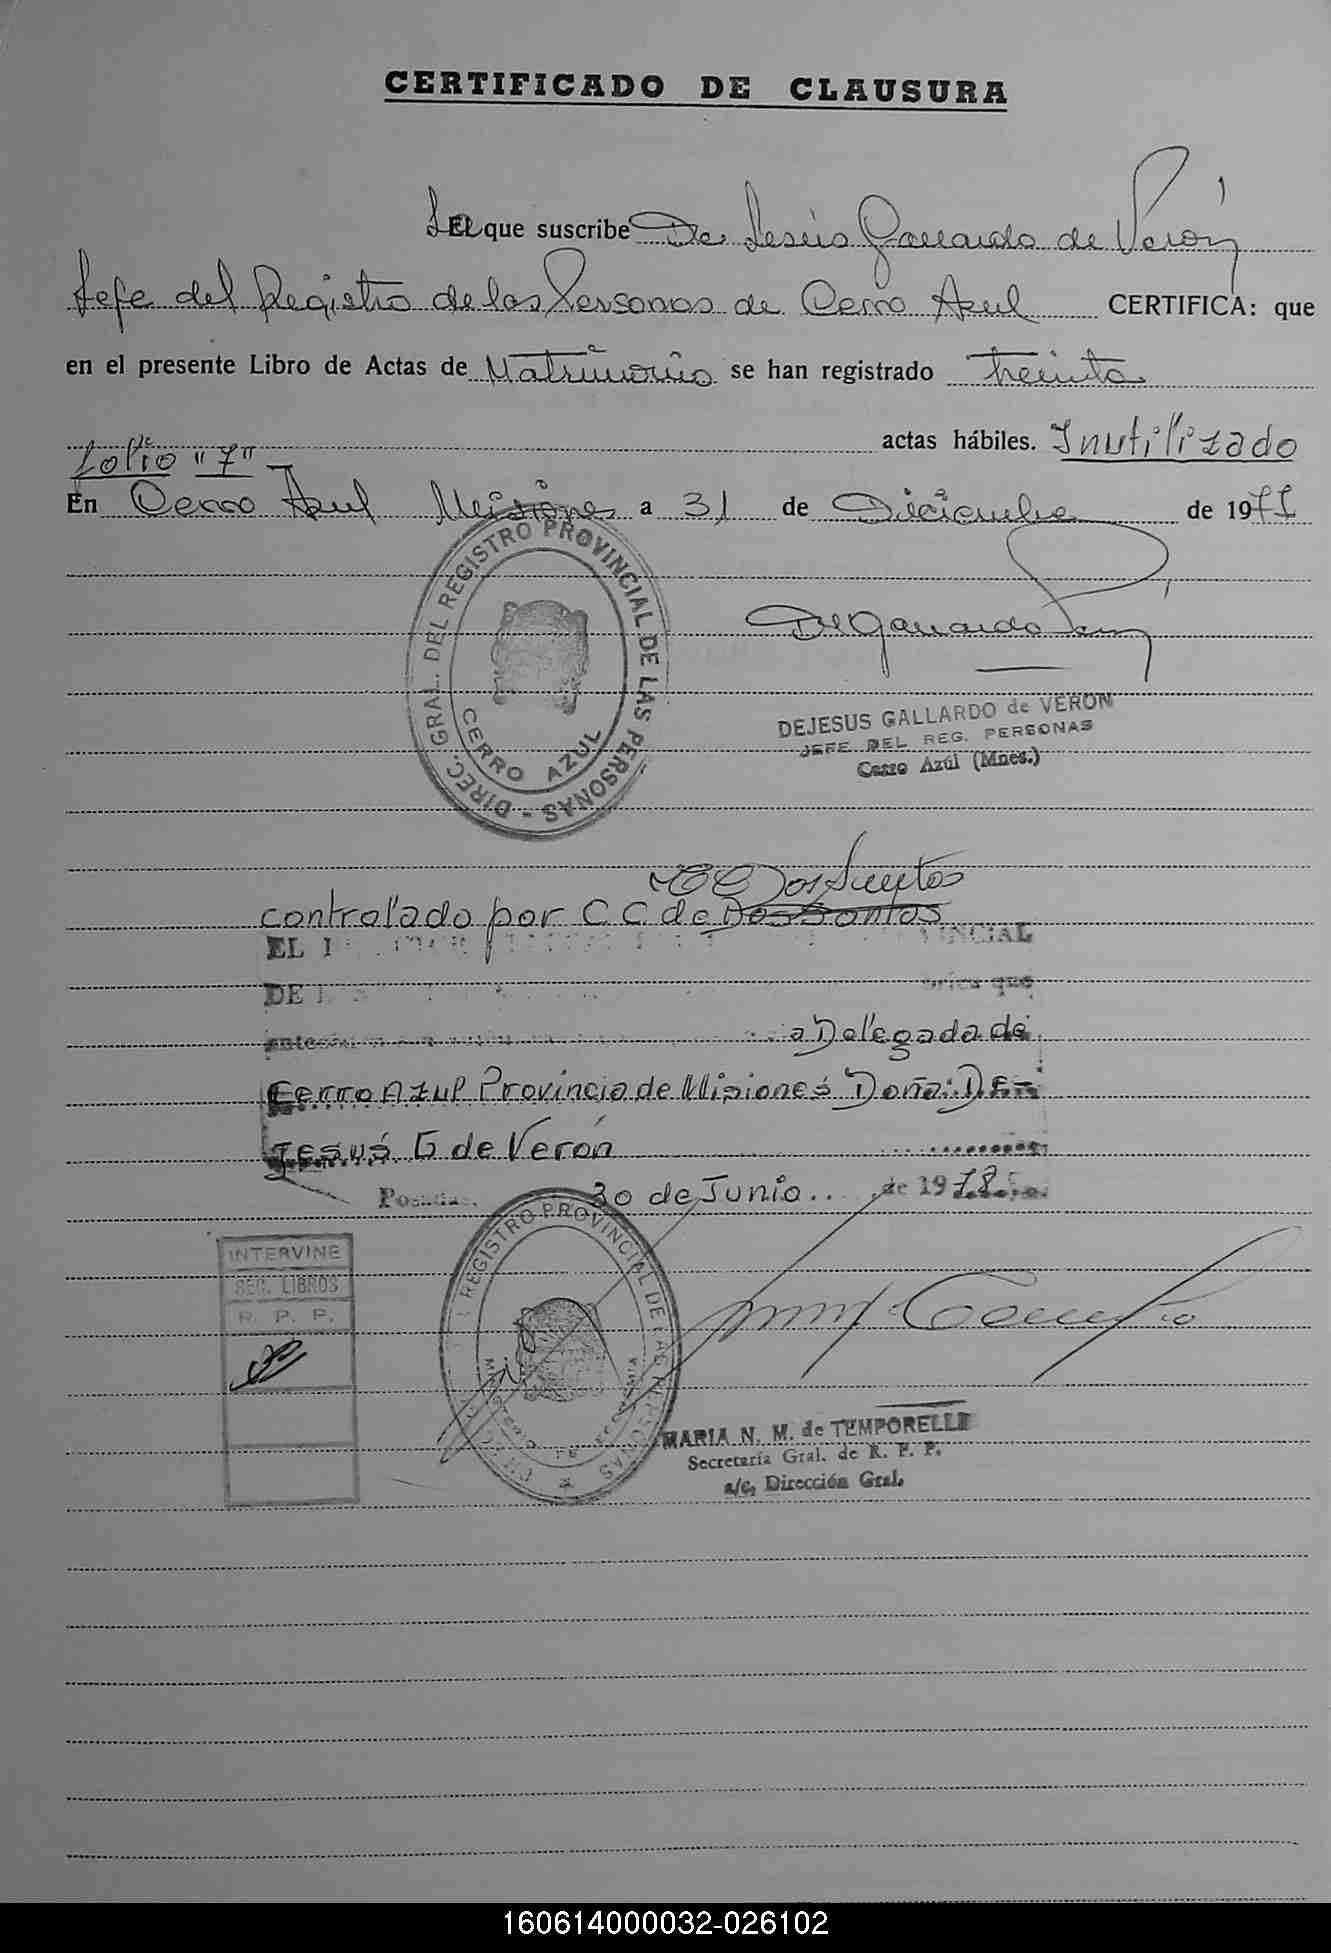 CERTIFICADO DE CLAUSURA
La que suscribe De Jesús Gallardo de Verón
Jefe del Registro de las Personas de Cerro Azul CERTIFICA: que
en el presente Libro de Actas de Matrimonio se han registrado treinta
actas hábiles. Inutilizado
folio "7"
En Cerro Azul Misiones a 31 de Diciembre de 1977
DIREC. GRAL. DEL REGISTRO PROVINCIAL DE LAS PERSONAS -
CERRO AZUL
DEJESUS GALLARDO de VERON
JEFE DEL REG. PERSONAS
Cerro Azúl (Mnes.)
controlado por C C de Dos Santos
EL
VINCIAL
DE
que
ante
a Delegada de
Cerro Azul Provincia de Misiones Doña: De-
Jesús G de Verón
Posadas, 30 de Junio de 1978
INTERVINE
SEC. LIBROS
R. P. P.
REGISTRO PROVINCIAL DE LAS PERSONAS
MARIA N. M. de TEMPORELLI
Secretaría Gral. de R. P. P.
a/c. Dirección Gral.
160614000032-026102